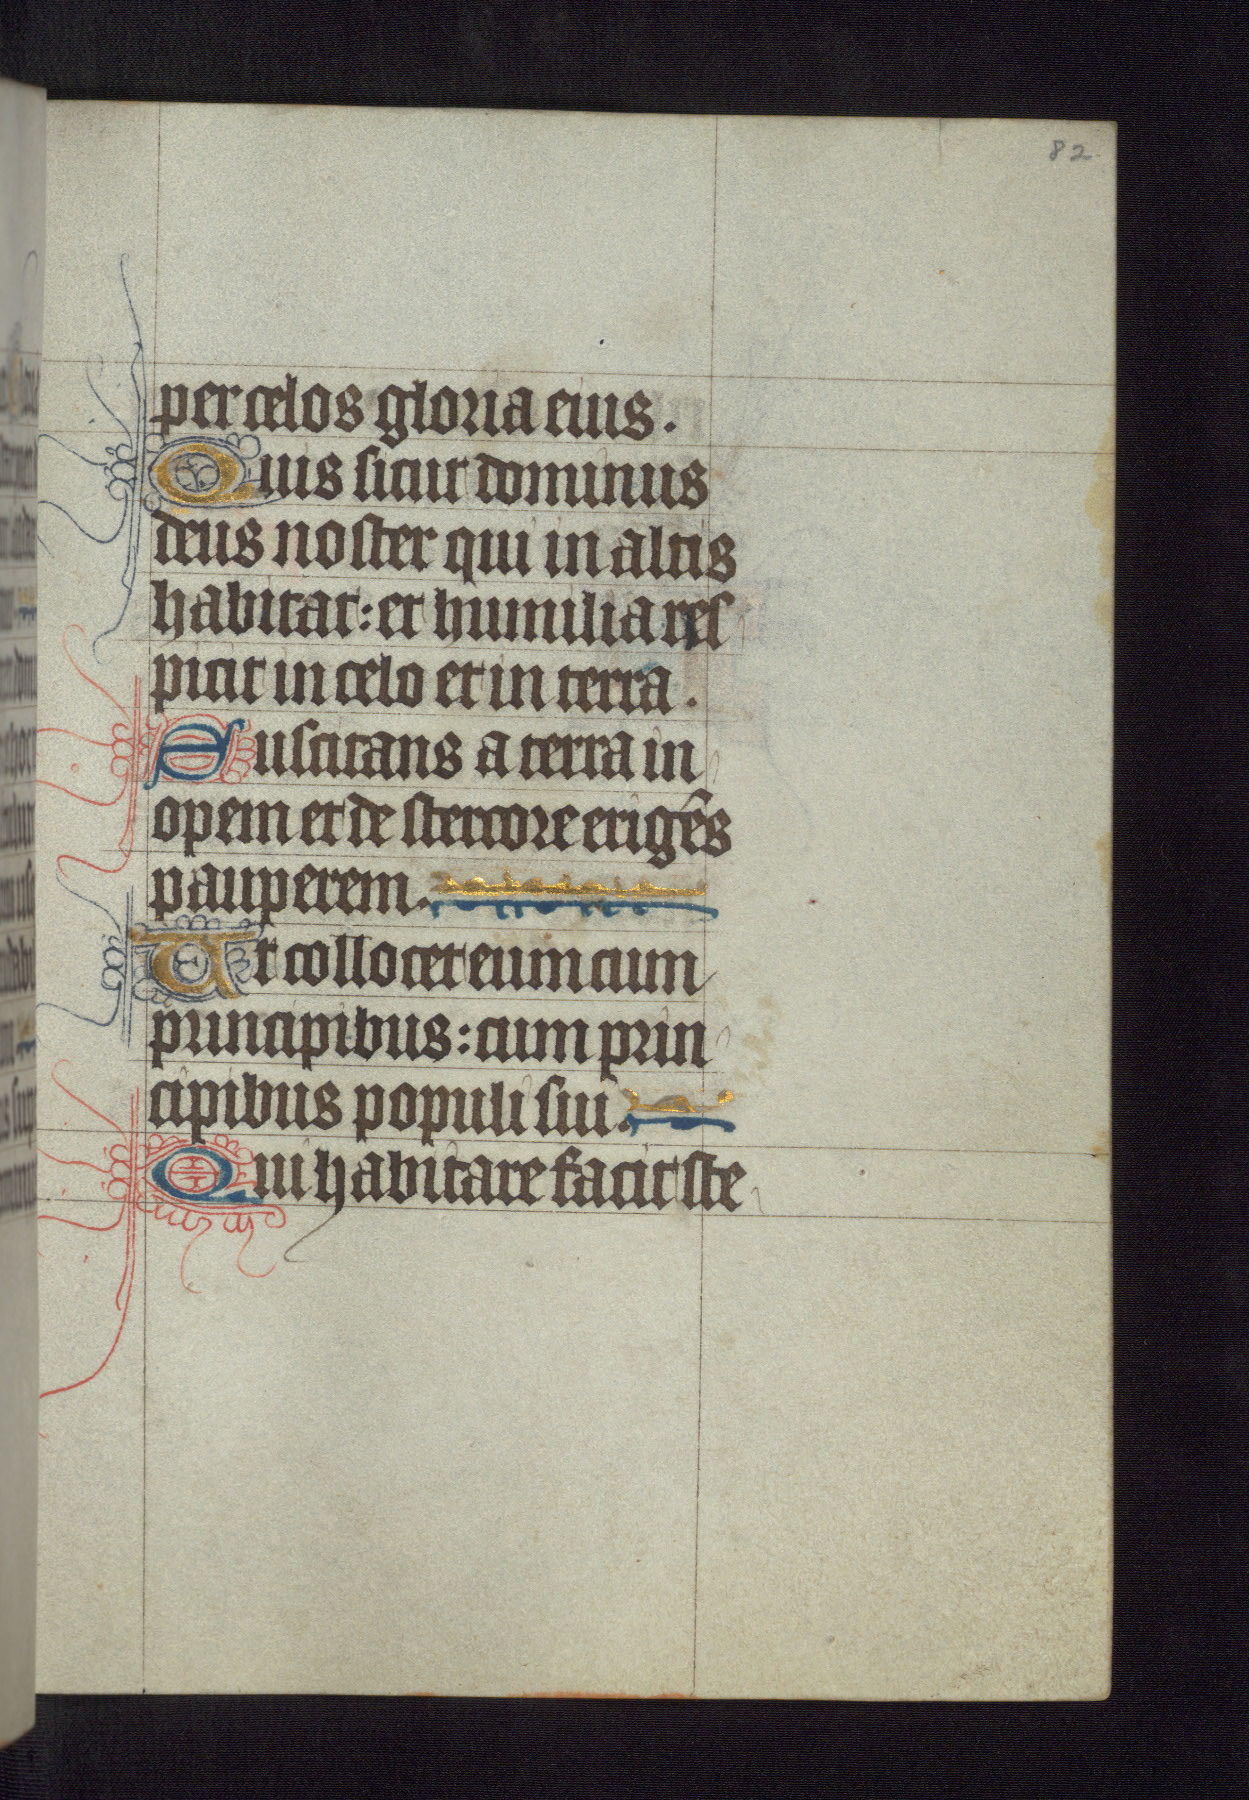 82
per celos gloria eius.
Quis sicut dominus
deus noster qui in altis
habitat: et humilia res
picit in celo et in terra.
Suscitans a terra in
opem et de stercore erigēs
pauperem.
Ut collocet eum cum
principibus: cum prin
cipibus populi sui.
Qui habitare facit ste